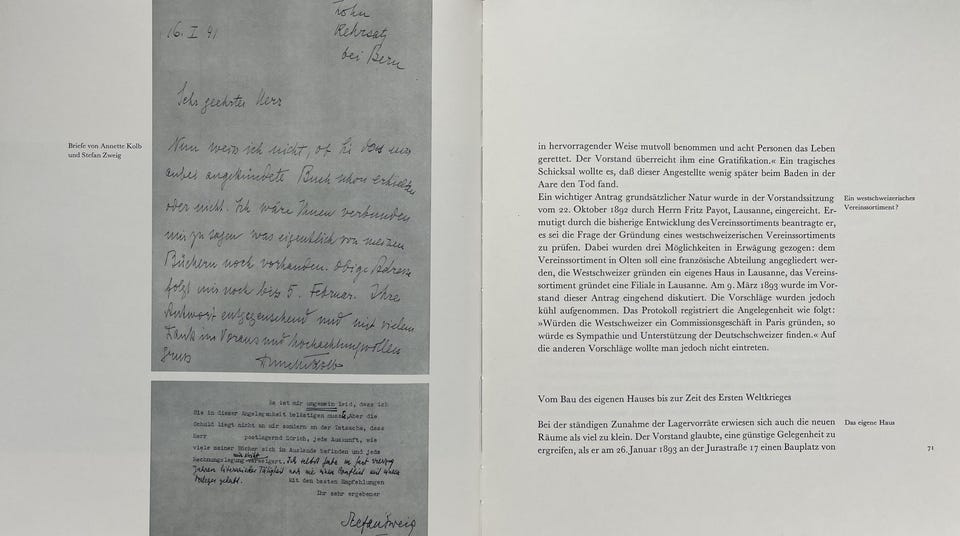 Briefe von Annette Kolb
und Stefan Zweig
16. I 41
Rehrsatz
bei Bern
Sehr geehrter Herr
Nun weiss ich nicht, ob Sie das
angekündete Buch schon erhielten
oder nicht. Ich wäre Ihnen verbunden
mir zu sagen was eigentlich von meinen
Büchern noch vorhanden. Obige Adresse
folgt mir noch bis 5. Februar. Ihre
Antwort entgegensehend und mit vielem
Dank im Voraus und hochachtungsvollem
Gruss
Annette Kolb
Es ist mir ungemein leid, dass ich
Sie in dieser Angelegenheit belästigen musste, Aber die
Schuld liegt nicht an mir sondern an der Tatsache, dass
Herr postlagernd Zürich, jede Auskunft, wie
viele meiner Bücher sich im Auslande befinden und jede
Rechnungslegung verweigert. Ich selbst habe in fast vierzig
Jahren literarischer Tätigkeit noch nie einen Conflict mit einem
Verleger gehabt. Mit den besten Empfehlungen
Ihr sehr ergebener
Stefan Zweig
in hervorragender Weise mutvoll benommen und acht Personen das Leben
gerettet. Der Vorstand überreicht ihm eine Gratifikation.« Ein tragisches
Schicksal wollte es, daß dieser Angestellte wenig später beim Baden in der
Aare den Tod fand.
Ein wichtiger Antrag grundsätzlicher Natur wurde in der Vorstandssitzung
vom 22. Oktober 1892 durch Herrn Fritz Payot, Lausanne, eingereicht. Er-
mutigt durch die bisherige Entwicklung des Vereinssortiments beantragte er,
es sei die Frage der Gründung eines westschweizerischen Vereinssortiments
zu prüfen. Dabei wurden drei Möglichkeiten in Erwägung gezogen: dem
Vereinssortiment in Olten soll eine französische Abteilung angegliedert wer-
den, die Westschweizer gründen ein eigenes Haus in Lausanne, das Vereins-
sortiment gründet eine Filiale in Lausanne. Am 9. März 1893 wurde im Vor-
stand dieser Antrag eingehend diskutiert. Die Vorschläge wurden jedoch
kühl aufgenommen. Das Protokoll registriert die Angelegenheit wie folgt:
»Würden die Westschweizer ein Commissionsgeschäft in Paris gründen, so
würde es Sympathie und Unterstützung der Deutschschweizer finden.« Auf
die anderen Vorschläge wollte man jedoch nicht eintreten.
Ein westschweizerisches
Vereinssortiment?
Vom Bau des eigenen Hauses bis zur Zeit des Ersten Weltkrieges
Bei der ständigen Zunahme der Lagervorräte erwiesen sich auch die neuen
Räume als viel zu klein. Der Vorstand glaubte, eine günstige Gelegenheit zu
ergreifen, als er am 26. Januar 1893 an der Jurastraße 17 einen Bauplatz von
Das eigene Haus
71